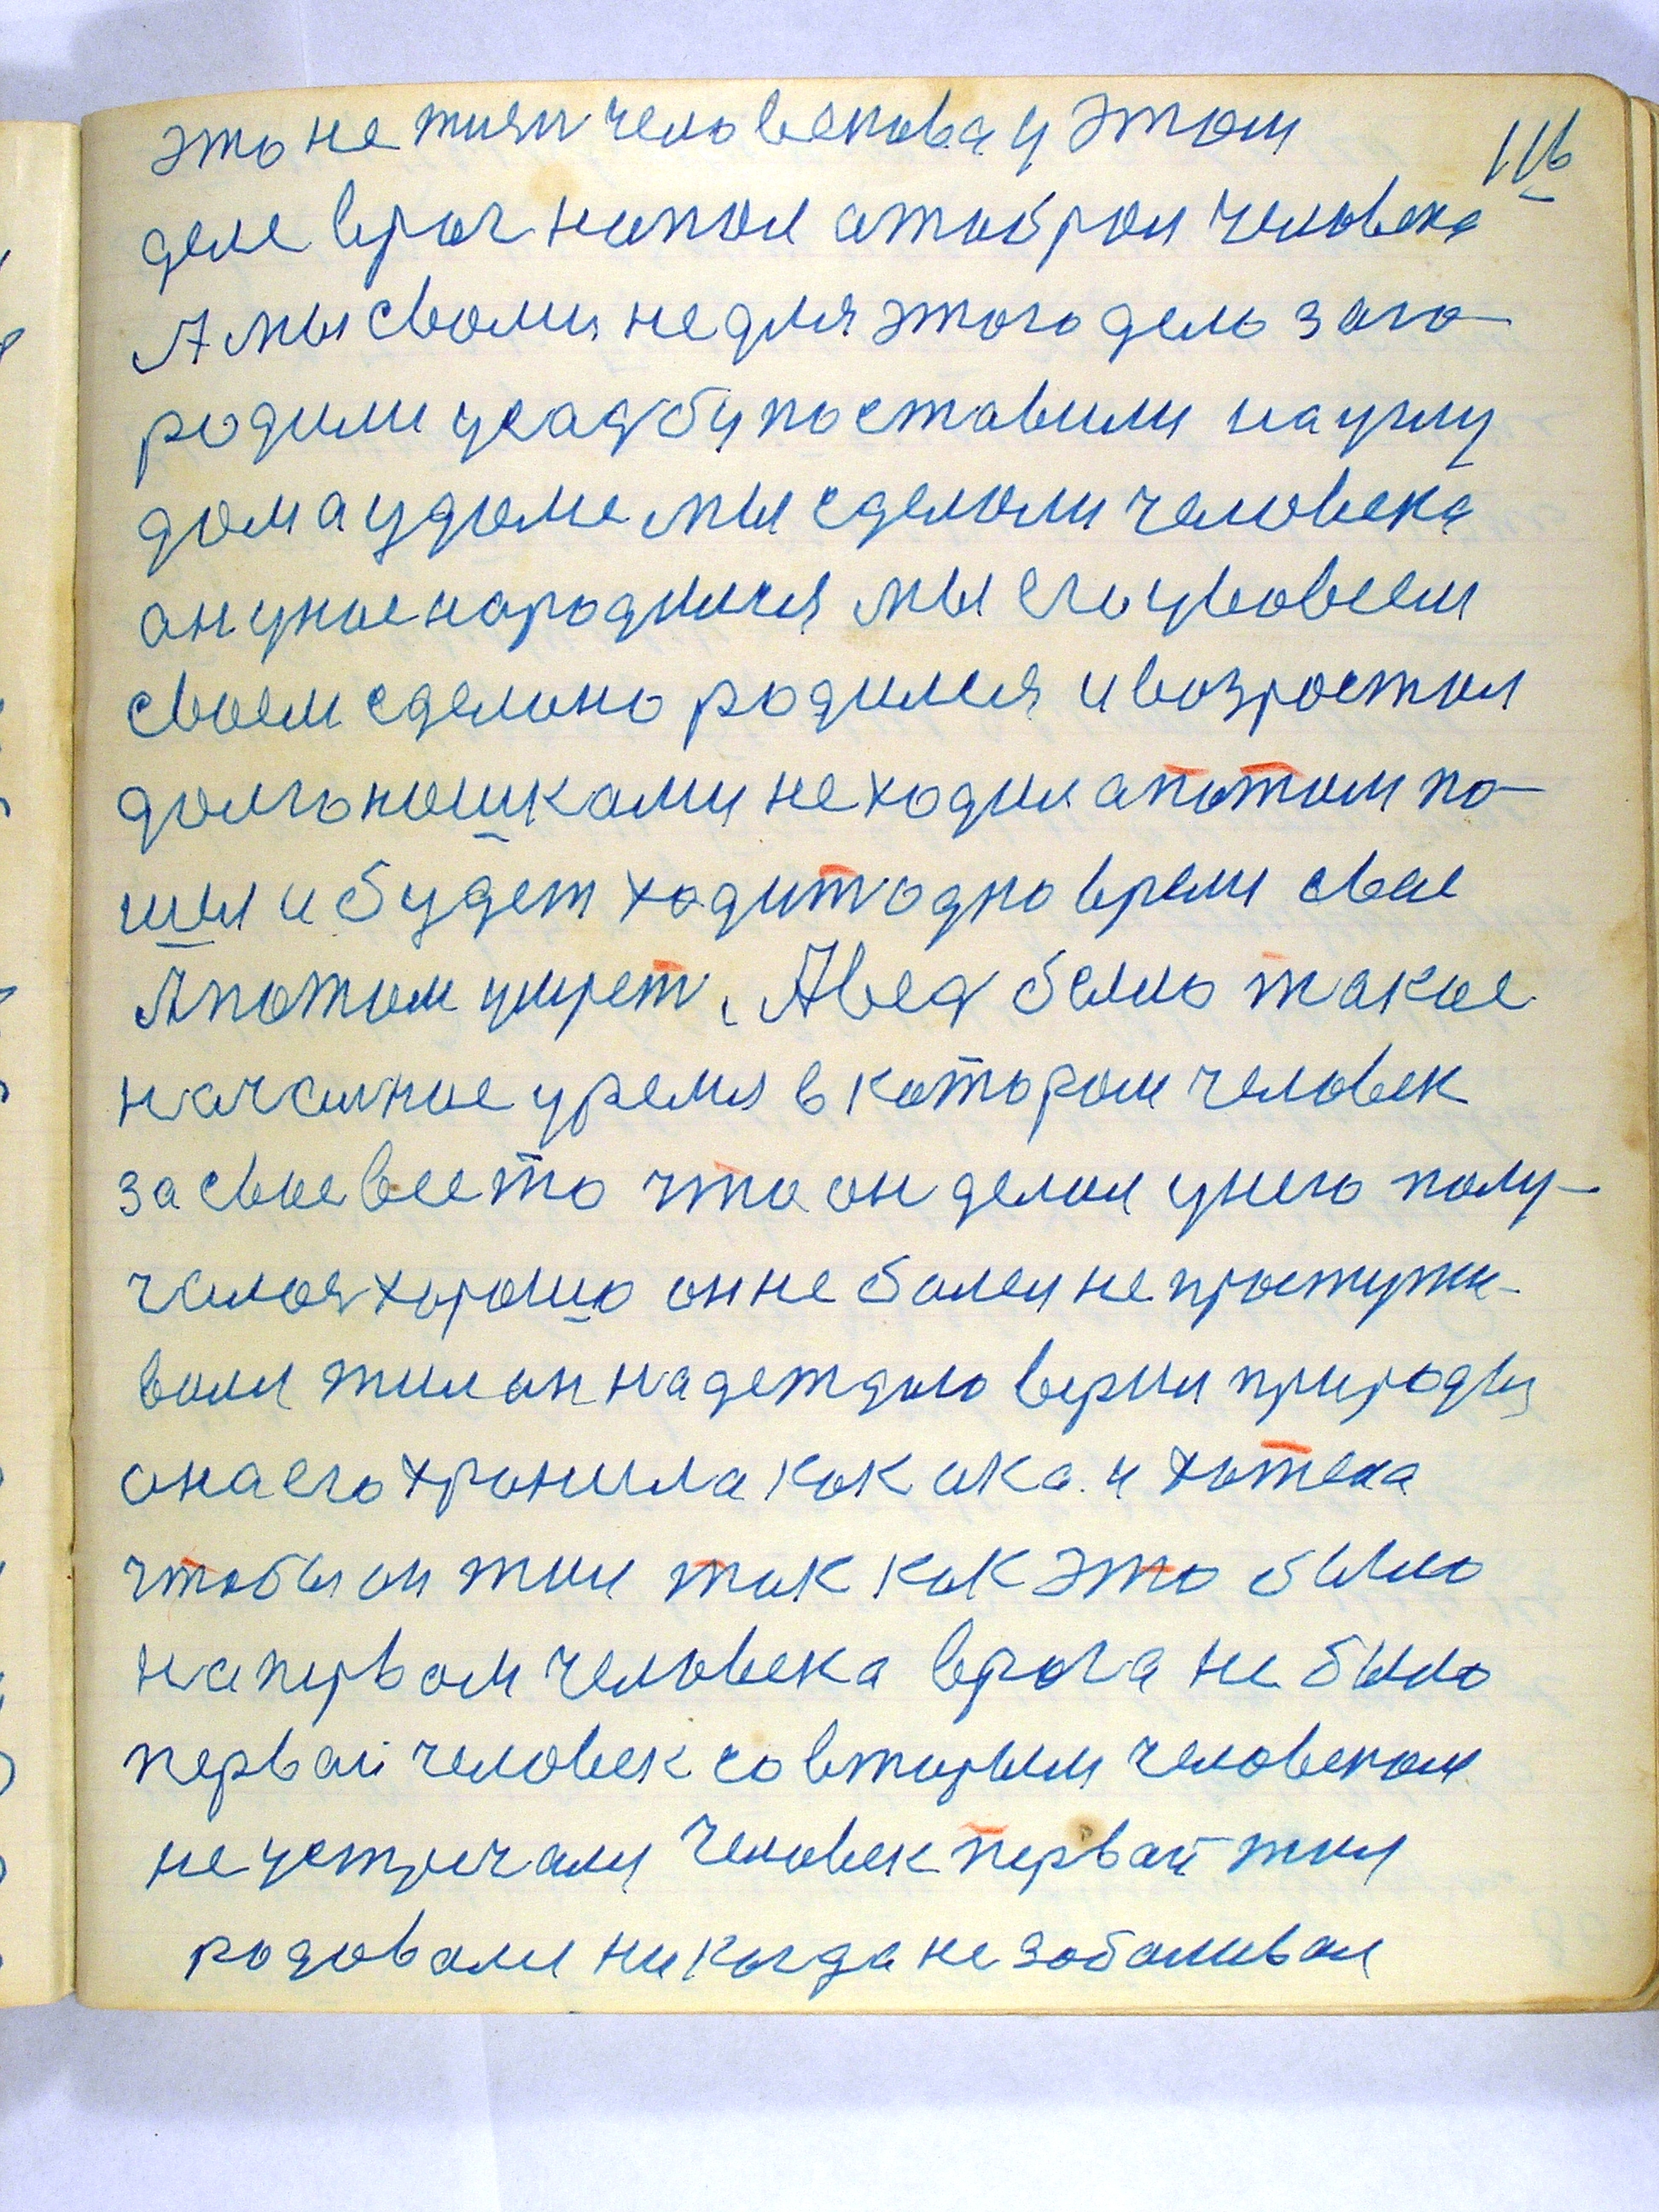 это не жизн человекова у этом
116
деле враг напал атобрал человека
А мы свами не для этого дело заго-
родили усадбу поставили на углу
дом а удоме мы сделали человека
ан унае народился мы его уровсем
своем сделано родился и возростал
долго ношками не ходил а потом по-
шол и будет ходит одно време свае
А потом умрет. Авед было такое
началное уремя в котором человек
за свое все то что он делал унего полу-
чалос хорошо он не болел не простужи-
вали жил он надеждаю верил природы
она его хранила как ака и хотела
чтобы он жил так как это было
на первам человека врага не было
первай человек со вторым человекам
не устричали человек первай жил
родовали никогда не заболивал